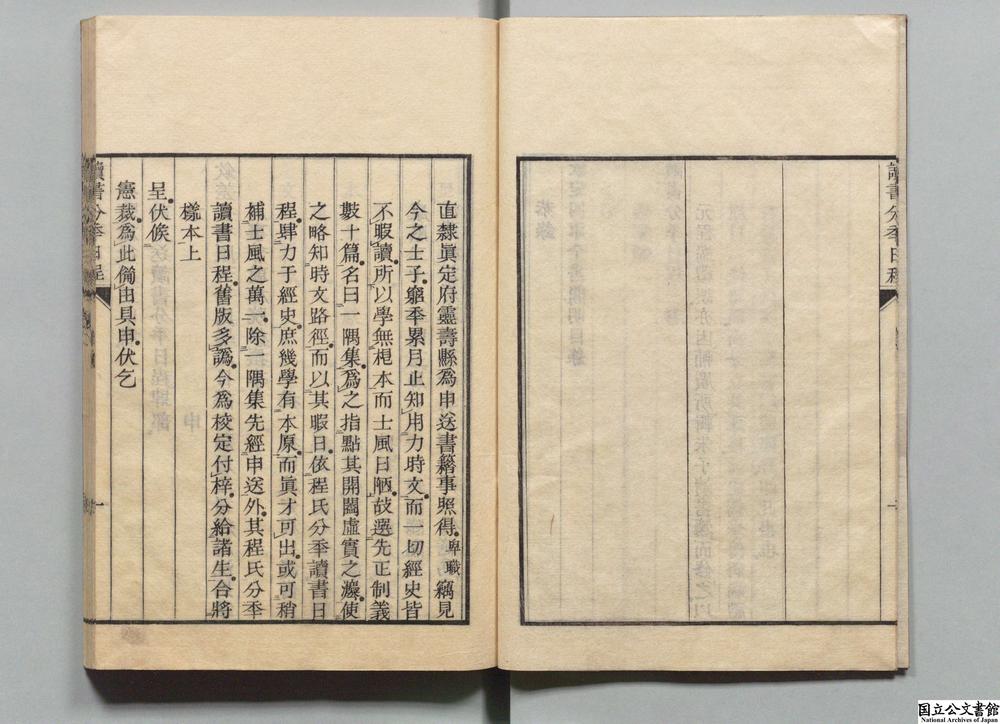 讀書分年日程
一
直隸眞定府靈壽縣爲申送書籍事照得卑職竊見
今之士子窮年累月止知用力時文而一切經史皆
不暇讀所以學無根本而士風日陋故選先正制義
數十篇名曰一隅集爲之指點其開闔虛實之灋使
之略知時文路徑而以其暇日依程氏分年讀書日
程肆力于經史庶幾學有本原而眞才可出或可稍
補士風之萬一除一隅集先經申送外其程氏分年
讀書日程舊版多譌今爲校定付梓分給諸生合將
樣本上
呈伏候
憲裁爲此備由具申伏乞
讀書分年日程
一
国立公文書館
National Archives of Japan